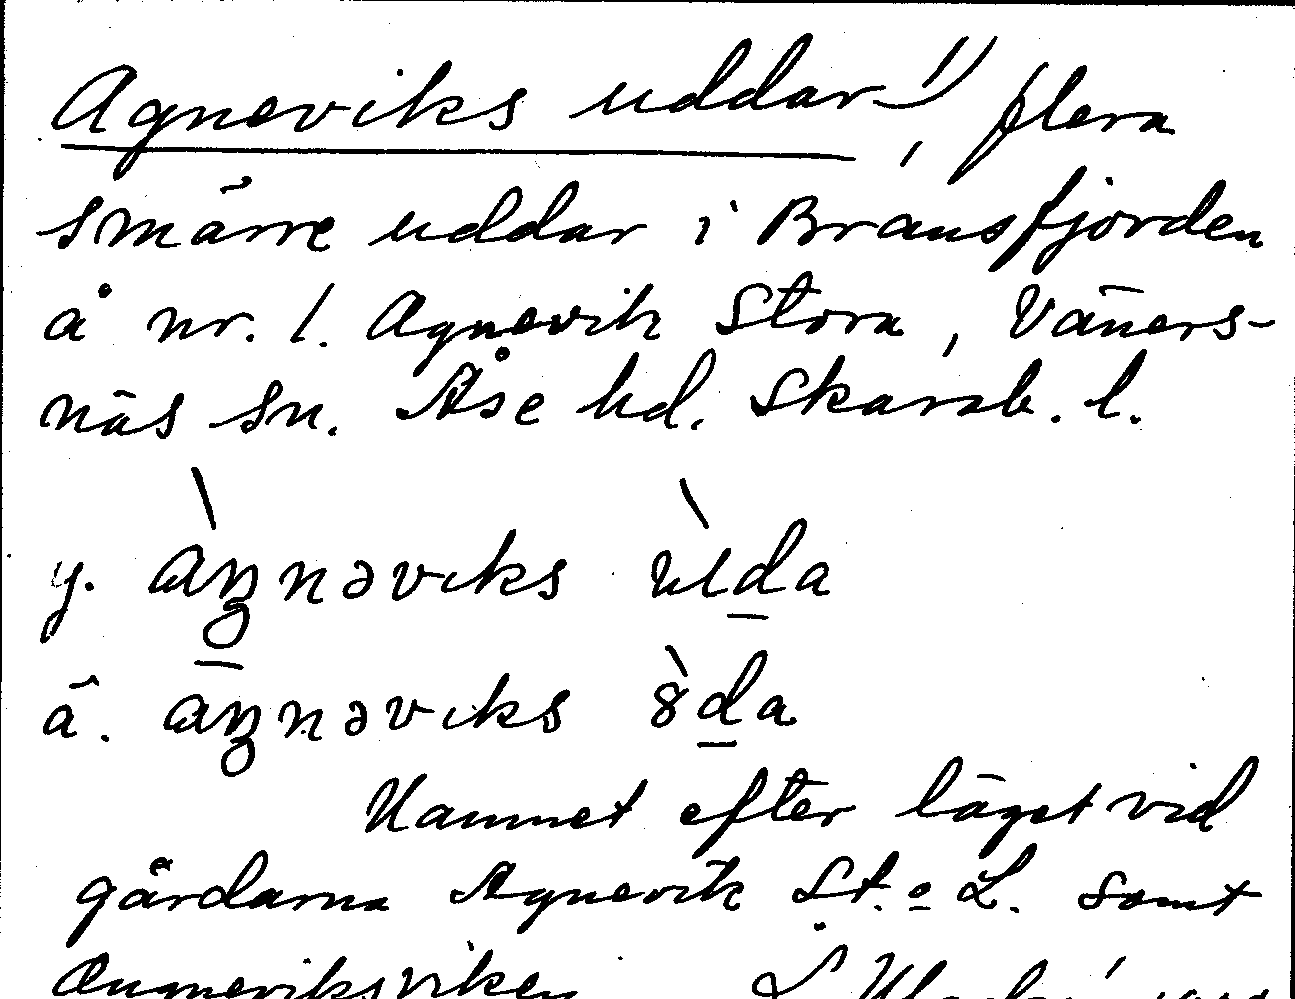 Agneviks uddar 1), flera
smärre uddar i Bransfjorden
å nr. 1. Agnevik Stora, Väners-
näs sn. Åse hd. Skarab. l.
y. àŋnəviks ùda
ä. aŋnəviks 8̀da
Namnet efter läget vid
gårdarna Agnevik St. o L. samt